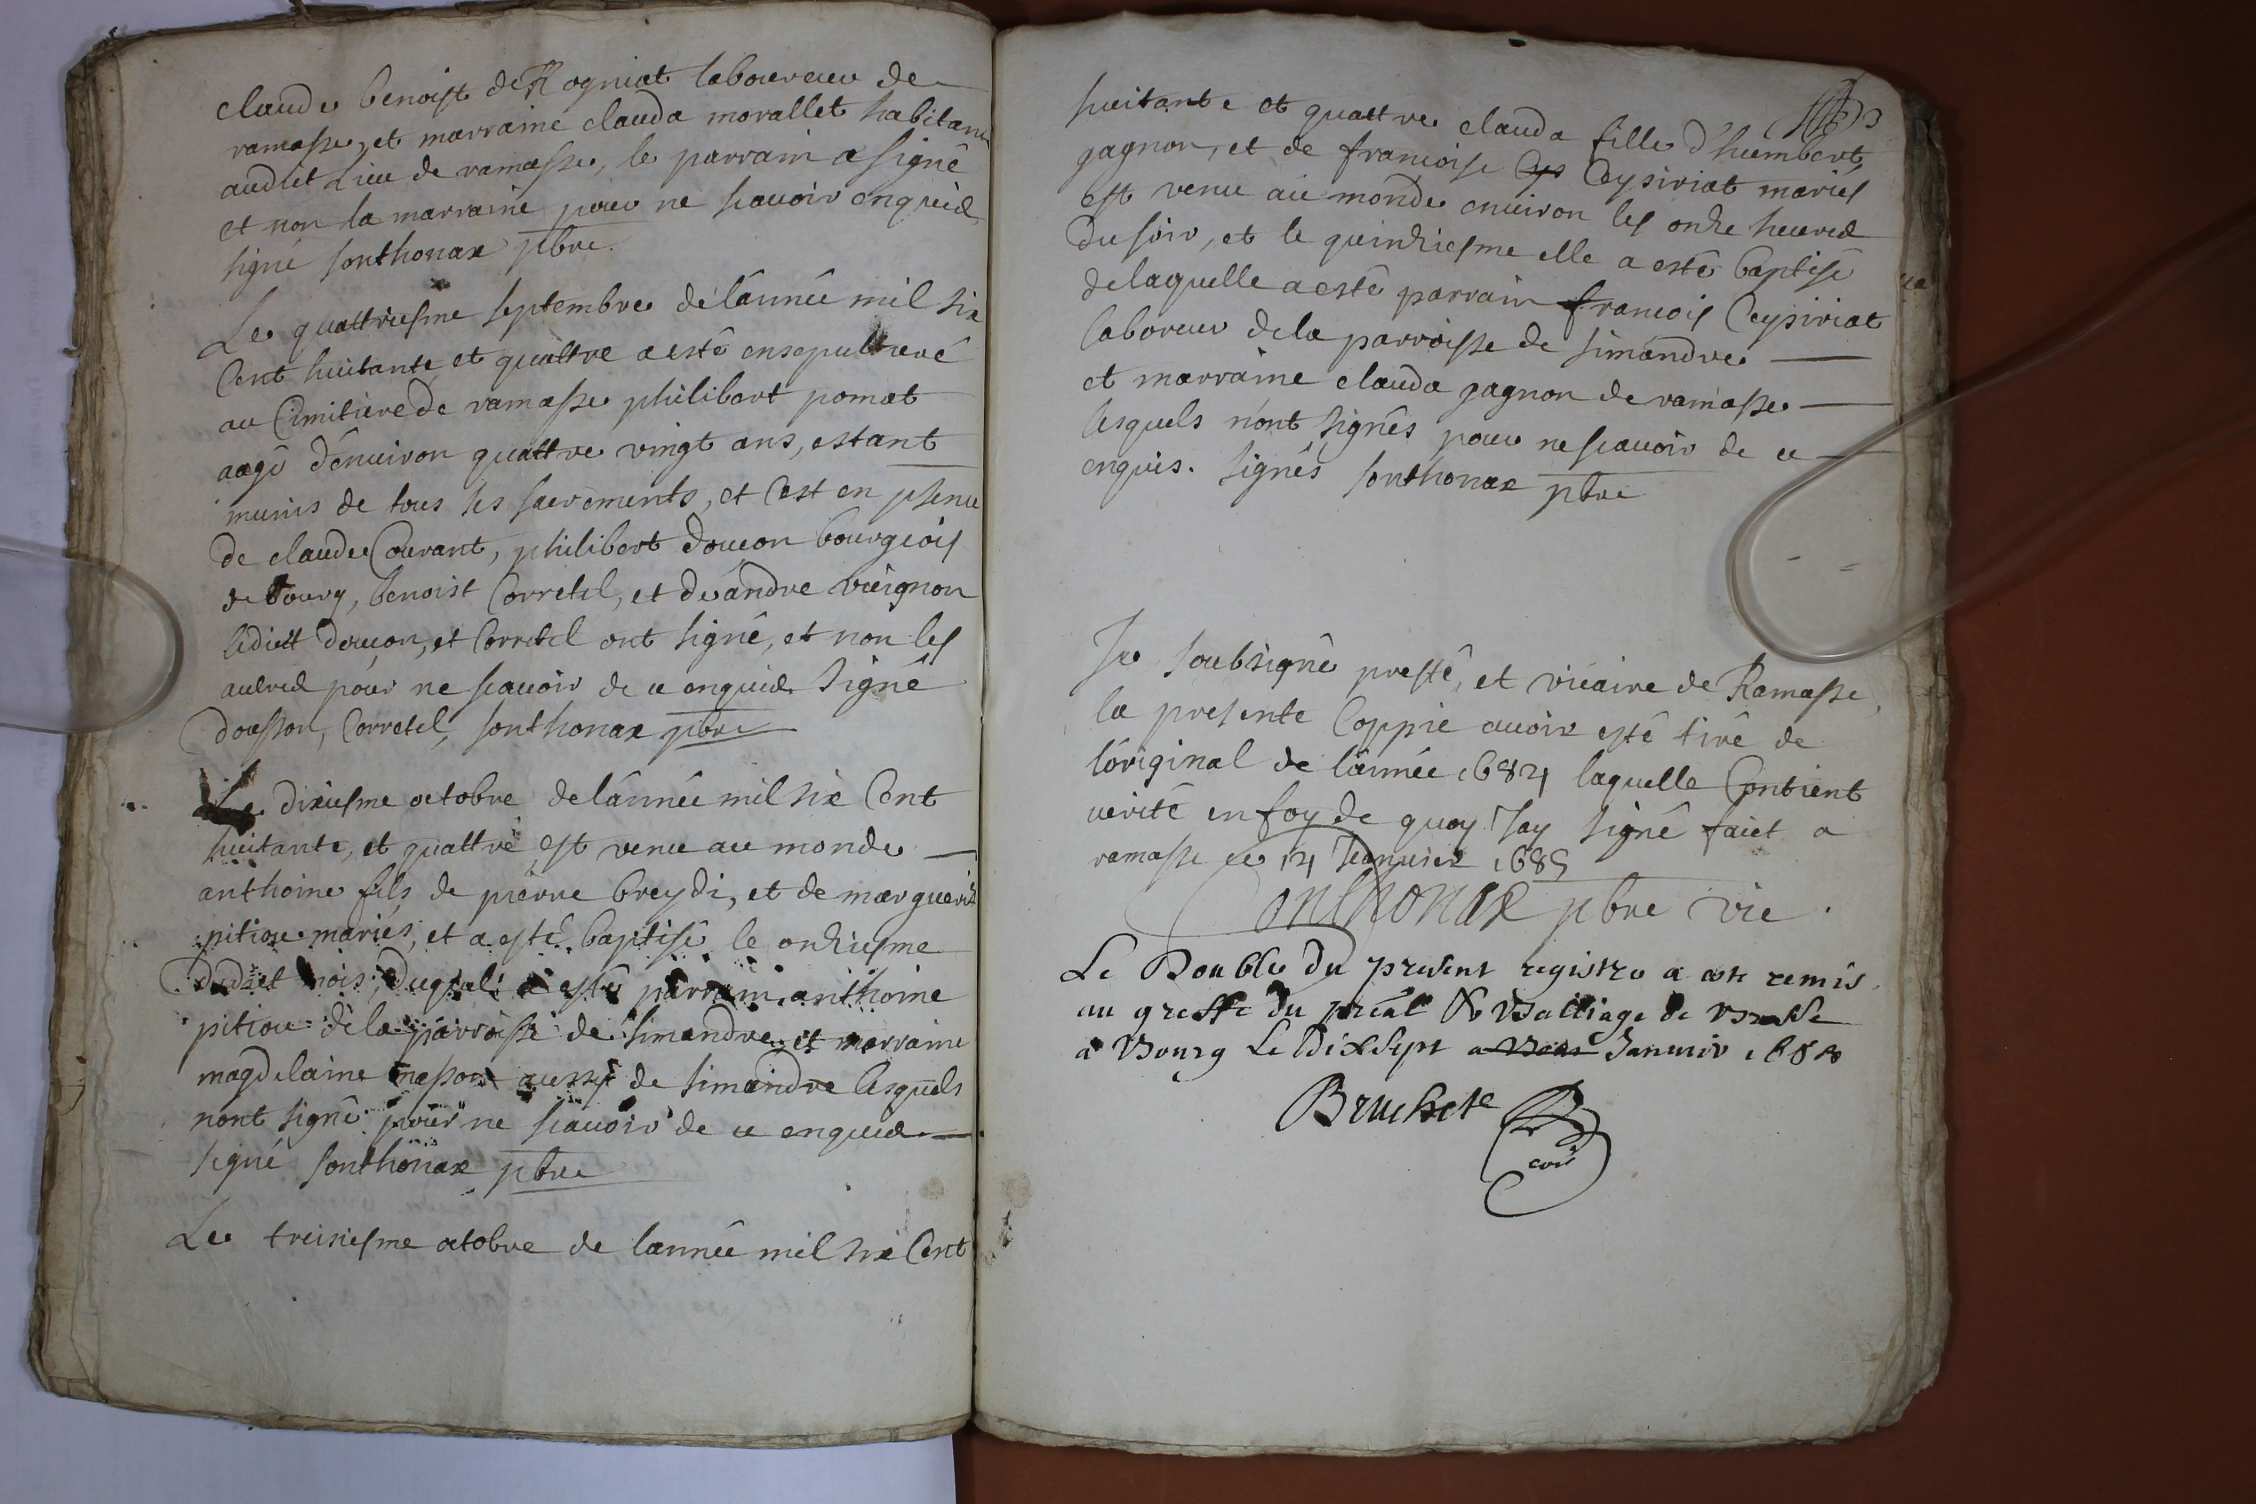 claude benoist de Rogniat laboureur de
ramasse, et marraine clauda morallet habitant
audict Lieu de ramasse, le parrain a signé
et non la marraine pour ne scavoir enquis
signé sonthonax pbre.
Le quattriesme septembre de l'année mil six
Cent huitante et quattre a esté ensepulturé
au Cimitiere de ramasse philibert pomat
aagé d'enuiron quattre vingt ans, estant
munis de tous les sacrements, et C'est en psence
de claude Courant, philibert doucon bourgeois
de bourg, benoist Corretel, et de andre vuignon
ledict doucon, et Corretel ont signé, et non les
autres pour ne scauoir de ce enquis. Signé
Dousson, Corretel, sonthonax pbre
Le dixiesme octobre de l'année mil six Cent
huitante, et quattre est venu au monde
anthoine fils de pierre breydi, et de marguerite
pitiou mariés, et a esté baptisé le onziesme
dudict mois, duquel a esté parrain anthoine
pitiou de la parroisse de simandre et marraine
magdelaine masson aussy de simandre lesquels
n'ont signé pour ne scauoir de ce enquis
signé sonthonax pbre
Le treisiesme octobre de l'année mil six Cent
huitante et quattre clauda fille d'humbert
gagnon, et de francoise Cys Ceysiriat mariés
est venu au monde enuiron les onze heures
Du soir, et le quinziesme elle a esté baptisé
de laquelle a esté parrain francois Ceysiriat
laboreur de la parroisse de simandre
et marraine clauda gagnon de ramasse
lesquels n'ont signés pour ne scauoir de ce
enquis. Signés sonthonax pbre
Je soubsigné prestre, et vicaire de Ramasse,
la presente Coppie auoir esté tiré de
l'original de l'année 1684 laquelle Contient
verité en foy de quoy J'ay signé faict a
ramasse ce 14 Januier 1685
Sonthonax pbre vic.
Le Double du present registre a esté remis
au greffe du préal & Balliage de Bresse
a Bourg Le Dix sept a Janvier
Bruchet